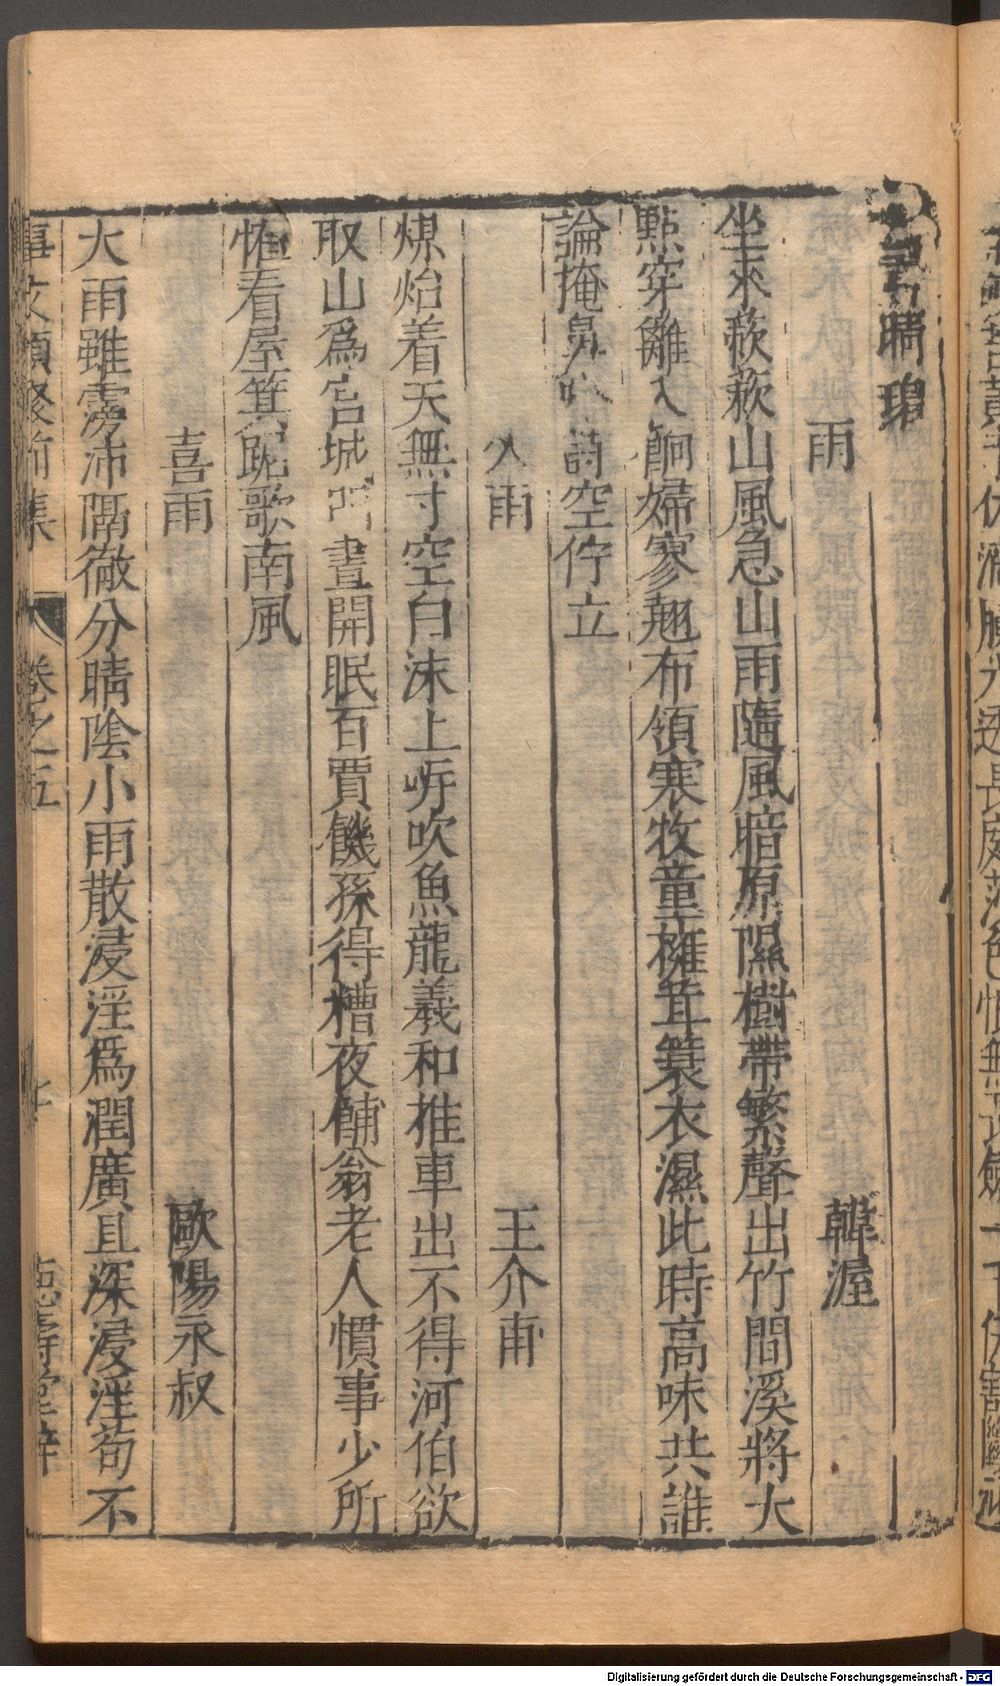 晴碧
雨
韓渥
坐來蔌蔌山風急山雨隨風暗原隰樹帶繁聲出竹間溪將大
點穿籬入餉婦寥翹布領寒牧童擁茸簑衣濕此時高味共誰
論掩鼻吟詩空佇立
久雨
王介甫
煤炲着天無寸空白沫上岓吹魚龍羲和推車出不得河伯欲
取山爲宮城門晝開眠百賈饑孫得糟夜餔翁老人慣事少所
惟看屋箕踞歌南風
喜雨
歐陽永叔
大雨雖霶沛隔轍分晴陰小雨散浸淫爲潤廣且深浸淫苟不
事文類聚前集
卷之五
七
德壽堂梓
Digitalisierung gefördert durch die Deutsche Forschungsgemeinschaft - DFG